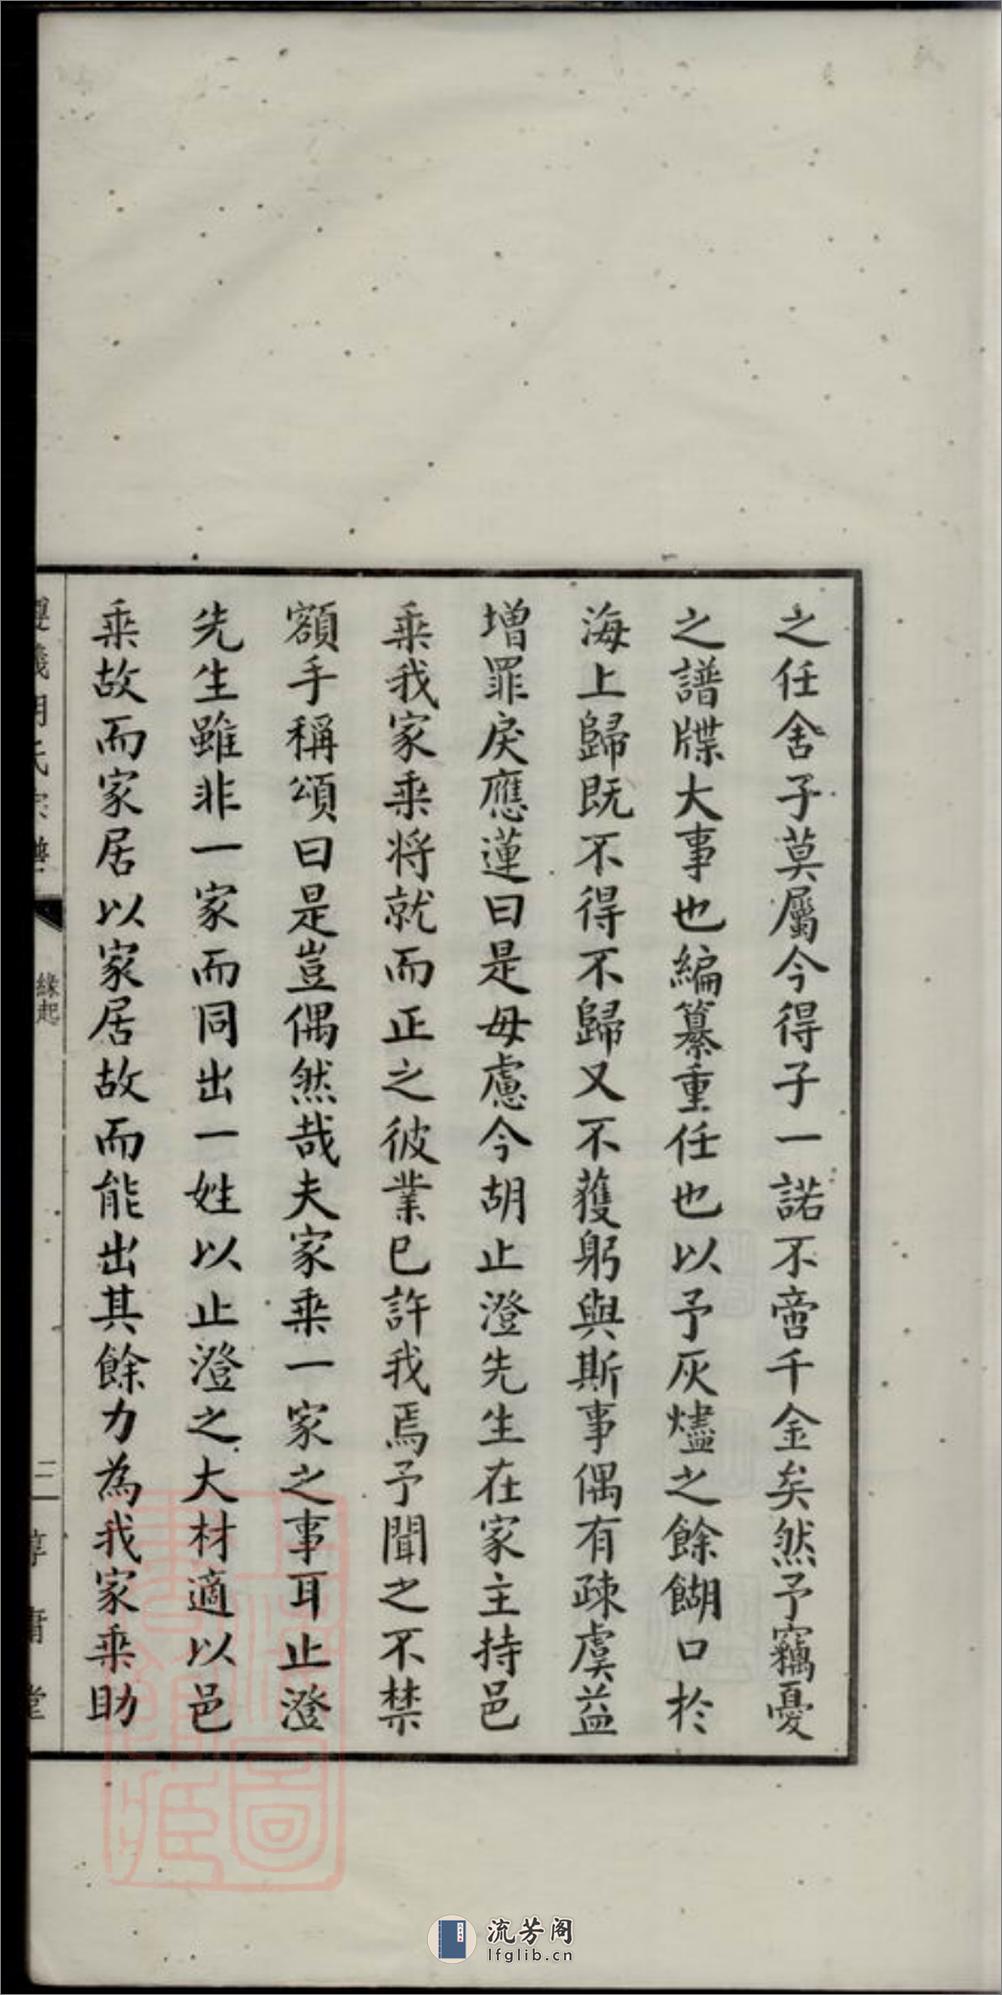 之任舍子莫屬今得子一諾不啻千金矣然予竊憂
之譜牒大事也編纂重任也以予灰燼之餘餬口於
海上歸既不得不歸又不獲躬與斯事偶有疎虞益
增罪戾應蓮曰是毋慮今胡止澄先生在家主持邑
乘我家乘將就而正之彼業已許我焉予聞之不禁
額手稱頌曰是豈偶然哉夫家乘一家之事耳止澄
先生雖非一家而同出一姓以止澄之大材適以邑
乘故而家居以家居故而能出其餘力為我家乘助
氏
緣起
三
流芳阁
lfglib.cn